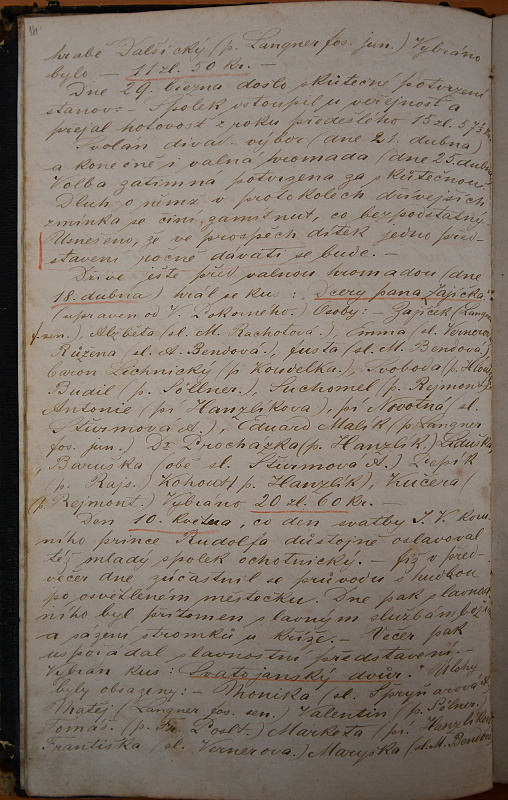 hrabě Dalsický (p. Langner fos. jun.) Vybráno
bylo — 11 zl. 50 kr. —
Dne 29. března došlo skutečné potvrzení
stanov. — Spolek vstoupil u veřejnost a
přejal hotovost z roku předešlého 15 zl. 57½
Svolán divad. výbor (dne 21. dubna)
a konečně i valná hromada (dne 25. dubna)
Volba zatímná potvrzena za skutečnou.
Dluh o němž v protokolech dřívějších
zmínka se činí zamítnut, co bezpodstatný.
Usnešeno, že ve prospěch dítek jedno před-
stavení ročně dávati se bude. —
Dříve ještě před valnou hromadou (dne
18. dubna) hrál se kus: „Dcery pana Zajíčka."
(upraven od V. Pokorného.) Osoby: — Zajíček (Langner
f. sen.), Alžběta (sl. M. Rachotová.), Emma (sl. Vernerova
Růžena (sl. A. Bendová.), Justa (sl. M. Bendová)
baron Lechnický (p. Koudelka.), Svoboda (p.
Budil (p. Söllner.), Suchomel (p. Rejmont
Antonie (pí Hanzlíkova), pí Novotná (sl.
Šturmova A.), Eduard Malík (p. Langner
fos. jun.) Dr. Procházka (p. Hanzlík.)
Baruška (obě sl. Šturmova A.) Čepík
(p. Rajs.) Kohout (p. Hanzlík), Kučera (
(p. Rejmont.) Vybráno 20 zl. 60 kr. —
Den 10. května, co den svatby J. V. koru-
ního prince Rudolfa důstojně oslavoval
též mladý spolek ochotnický. — Již v před-
večer dne zúčastnil se průvodu s hudbou
po osvětleném městečku. Dne pak slavnost-
ního byl přítomen slavným službám božím
a sázení stromků u kříže. — Večer pak
uspořádal slavnostní představení. —
Vybrán kus: „Svatojanský dvůr." Úlohy
byly obsazeny: — Monika (sl. Špryňarova A.
Matěj (Langner fos. sen. Valentin (p. Söllner.
Tomáš. (p. Fr. Poslt.) Markéta (pí. Hanzlíkova
Františka (sl. Vernerova.) Maryška (sl. M. Bendová